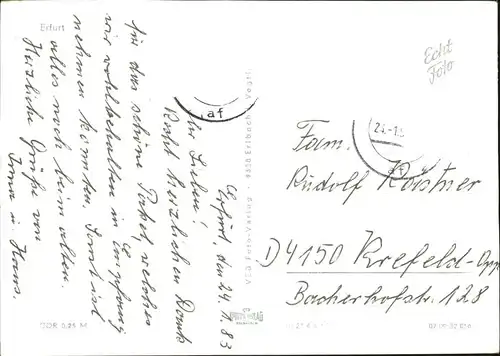 Erfurt
Erfurt, den 24.11.83
Ihr Lieben!
Recht herzlichen Dank
für das schöne Paket, welches
wir wohlbehalten in Empfang
nehmen konnten. Sonst ist
alles noch beim alten.
Herzliche Grüße von
Irma u. Hans.
DDR 0,25 M
VEB Foto-Verlag · 9650 Erlbach · Vogtl.
Echt
Foto
af
24.-1
Fam.
Rudolf Köstner
D4150 Krefeld-Opp
Bacherhofstr. 128